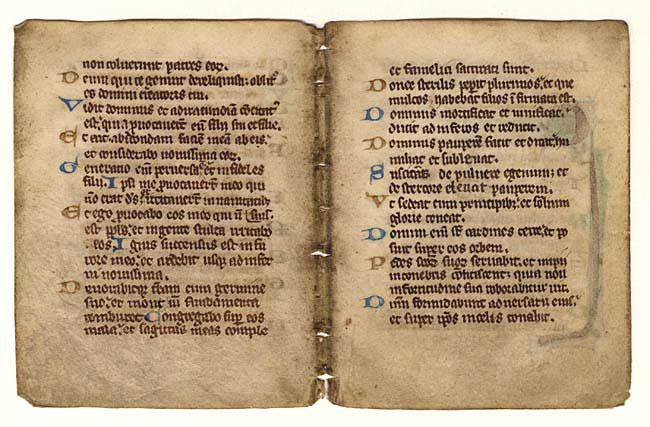 non coluerunt patres eor̄.
Deum qui te genuit dereliquisti: oblit᷒
es domini creatoris tui.
Vidit dominus et ad iracundiā cōcitat᷒
est. quia ꝓuocauerūt eū filii sui et filie.
Et ait. abscondam faciem meā ab eis.
et considerabo nouissima eor̄.
Generatio eni ꝑuersa est: et infideles
filii. Ipsi me ꝓuocauerūt in eo qui
nō erat d̄s: et irritauerūt in uanitatib᷒
Et ego ꝓuocabo eos in eo qui nō
est ppls: et in gente stulta irritabo
eos. Ignis succensus est in fu
rore meo: et ardebit usq; ad infer
ni nouissima.
Deuorabitq; t̄ram cum germine
suo: et montiū fundamenta
comburet. Congregabo suꝑ eos
mala: et sagittas meas comple
et famelici saturati sunt.
Donec sterilis peꝑit plurimos: et que
multos habebat filios īfirmata est.
Dominus mortificat et uiuificat:
ducit ad inferos et reducit.
Dominus pauperē facit et ditat: hu
miliat et subleuat.
Suscitās de puluere egenum: et
de stercore eleuat pauperem.
Vt sedeat cum principib᷒: et solium
glorie teneat.
Domini eni st̄ cardines terre: et po
suit super eos orbem.
Pedes sc̄or̄ suor̄ seruabit: et impii
in tenebris cōticescent: quia non
in fortitudine sua roborabitur uir.
Dn̄m formidabunt aduersarii eius:
et super ip̄os in celis tonabit.